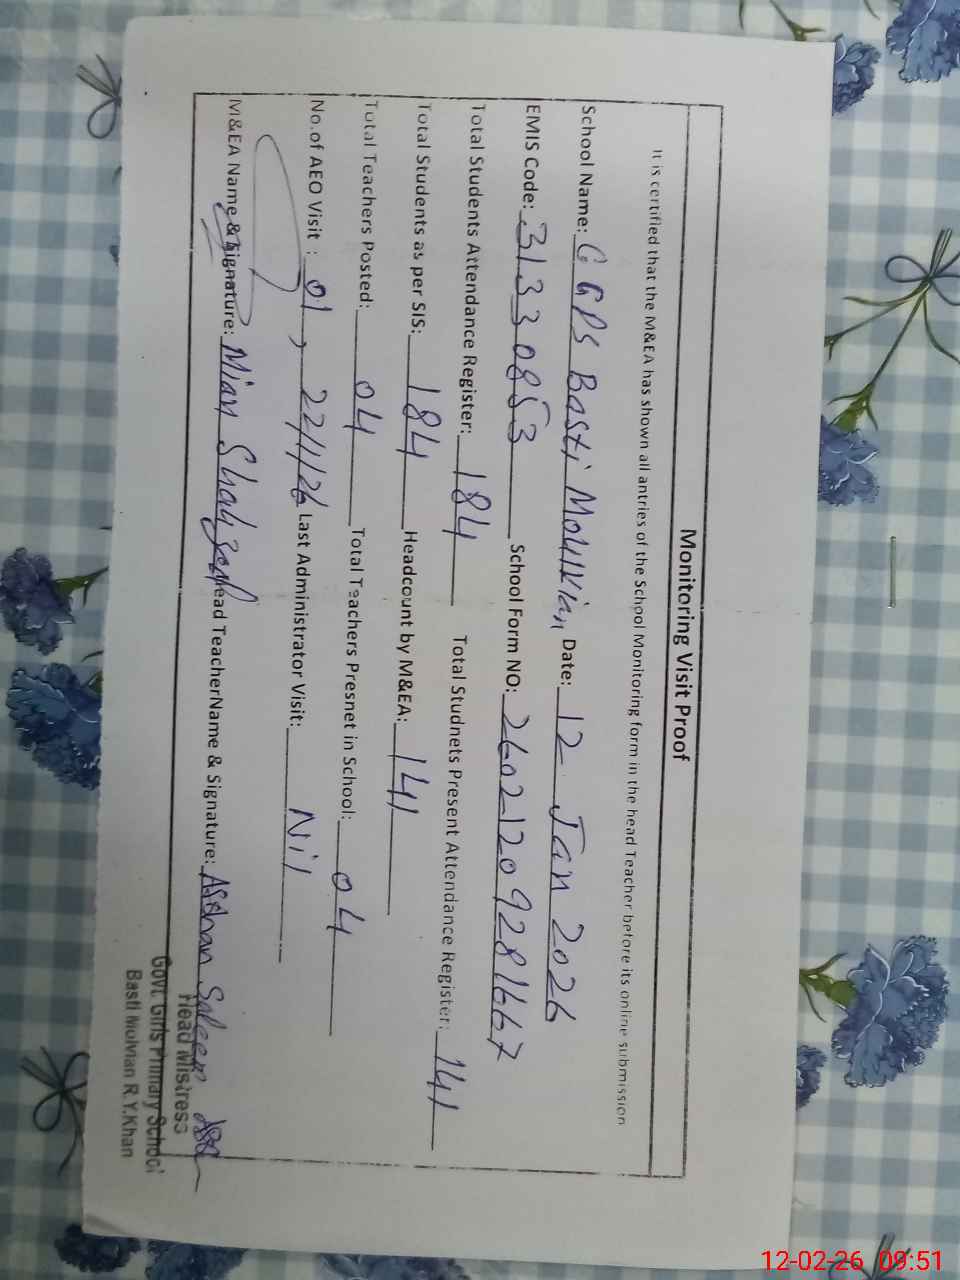 Monitoring Visit Proof
It is certified that the M&EA has shown all antries of the School Monitoring form in the head Teacher before its online submission
School Name: GGPS Basti Moulvian Date: 12 Jan 2026
EMIS Code: 31330853 School Form NO: 26021209281667
Total Students Attendance Register: 184 Total Studnets Present Attendance Register: 141
Total Students as per SIS: 184 Headcount by M&EA: 141
Total Teachers Posted: 04 Total Teachers Presnet in School: 04
No.of AEO Visit : 01, 22/1/26 Last Administrator Visit: Nil
M&EA Name & Signature: Mian Shahzad Head TeacherName & Signature: Saleem
Head Mistress
Govt. Girls Primary School
Basti Molvian R.Y.Khan
12-02-26 09:51